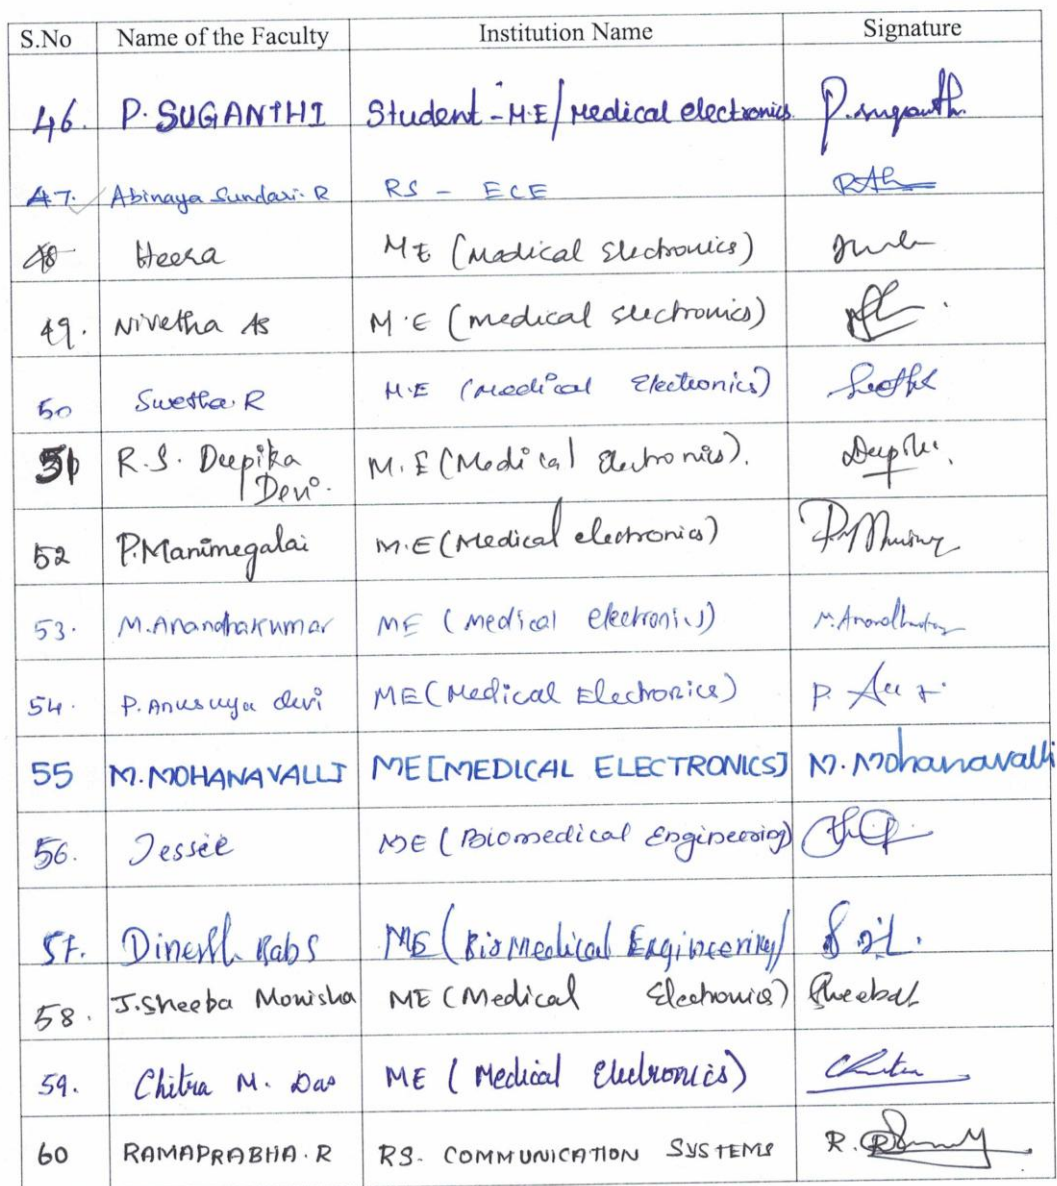 S.No Name of the Faculty Institution Name Signature
46. P. SUGANTHI Student - M.E / Medical electronics P. Suganthi
47. Abinaya Sundari. R RS - ECE
48 Heera ME (Medical Electronics)
49. Nivetha AS M.E (medical electronics)
50 Swetha. R M.E (Medical Electronics)
51 R.S. Deepika M.E (Medical Electronics).
Devi.
52 P.Manimegalai M.E (Medical electronics)
53. M.Anandhakumar ME (Medical electronics) M.Anandhakumar
54. P. Anusuya devi ME (Medical Electronics)
55 M. MOHANAVALLI ME [MEDICAL ELECTRONICS] M. Mohanavalli
56. Jessie ME (Biomedical Engineering)
57. Dinesh Babs ME (BioMedical Engineering)
58. J.Sheeba Monisha ME (Medical Electronics)
59. Chitra M. Das ME (Medical Electronics) Chitra
60 RAMAPRABHA. R RS. COMMUNICATION SYSTEMS R.